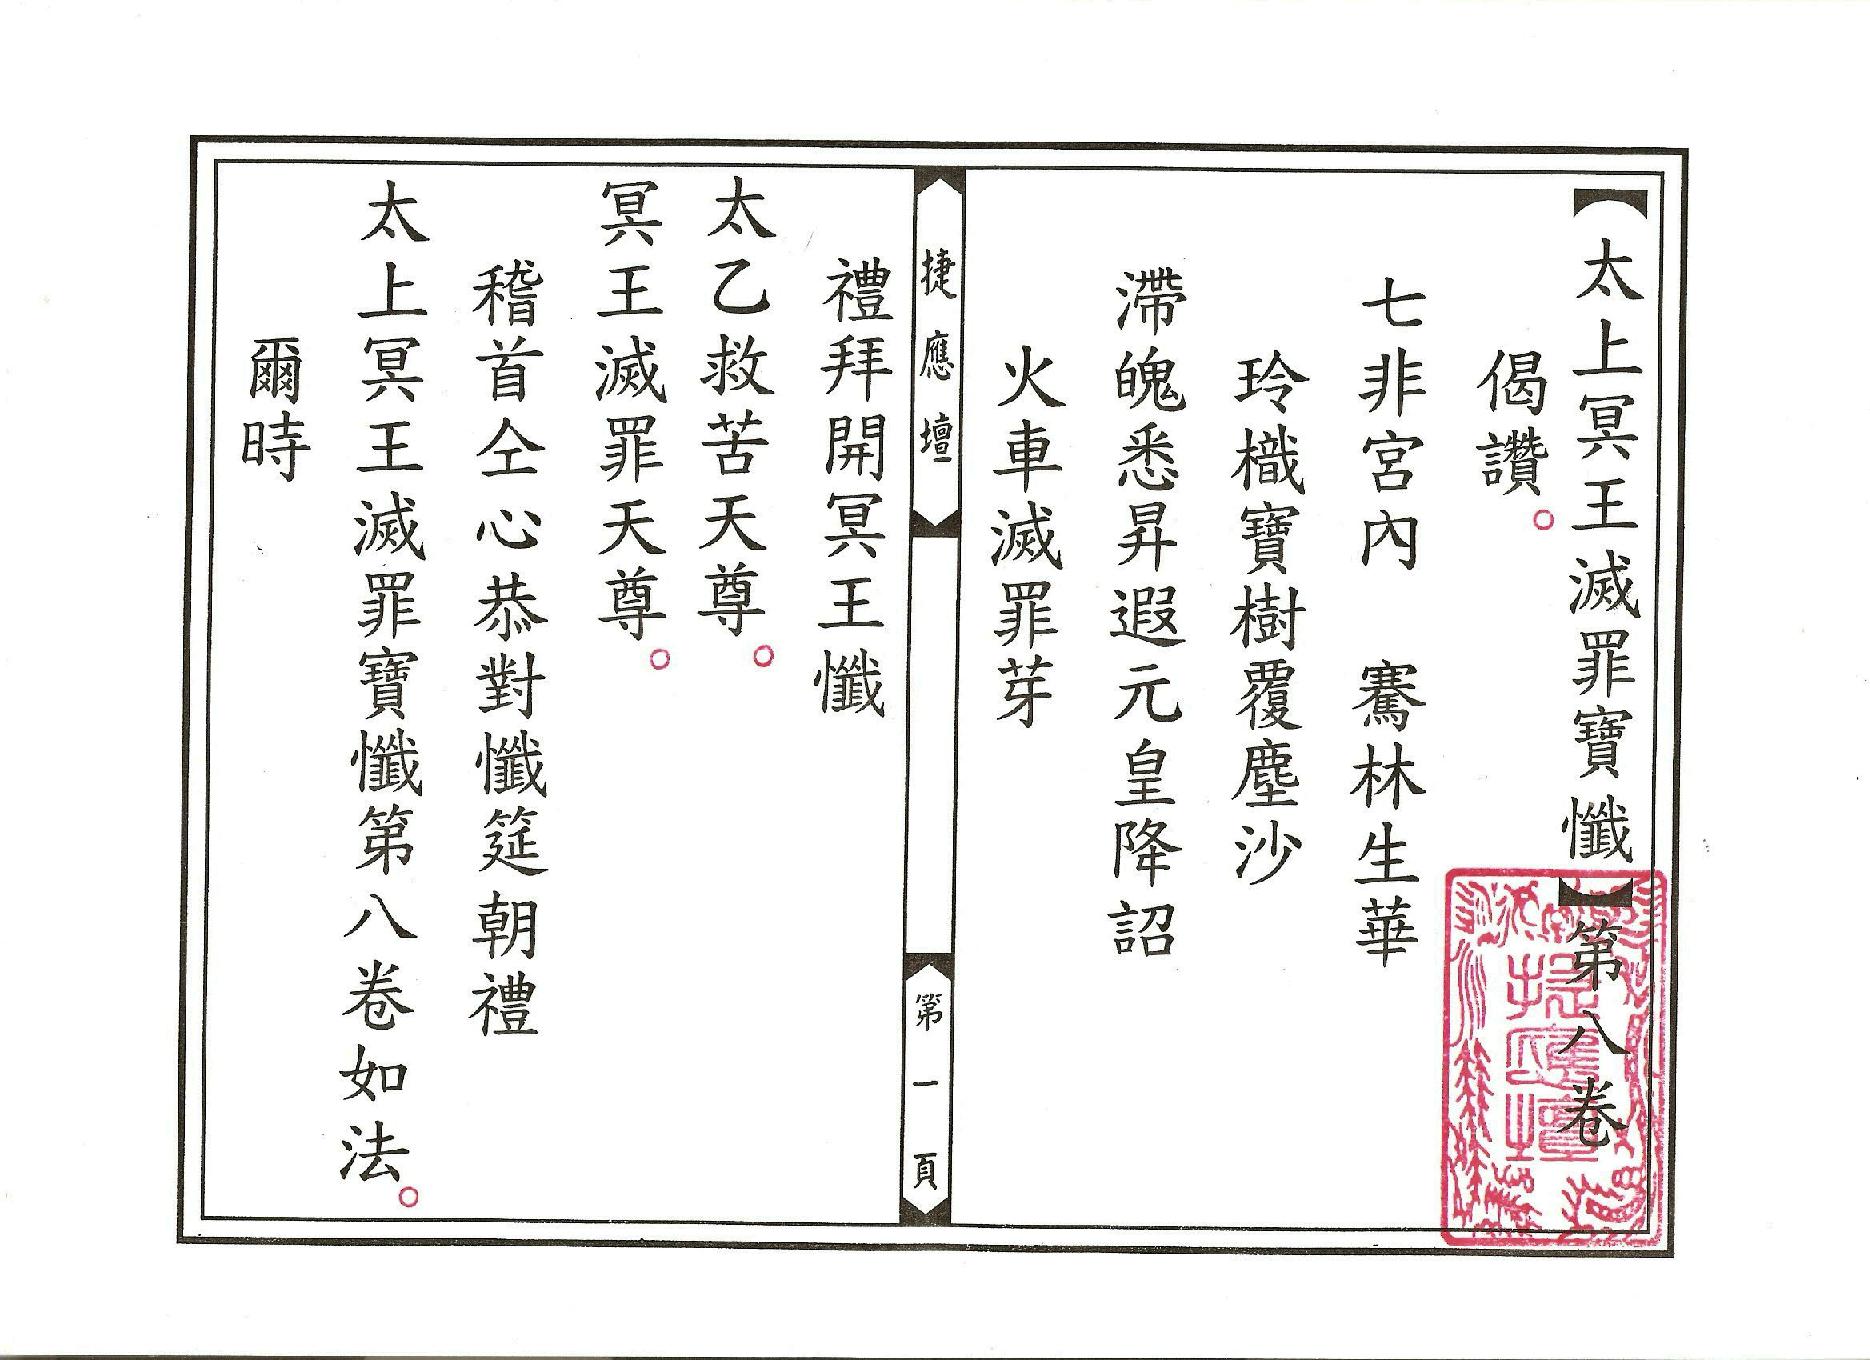 【太上冥王滅罪寶懺】第八卷
偈讚。
七非宮內　騫林生華
玲樴寶樹覆塵沙
滯魄悉昇遐元皇降詔
火車滅罪芽
捷應壇
第一頁
禮拜開冥王懺
太乙救苦天尊。
冥王滅罪天尊。
稽首仝心恭對懺筵朝禮
太上冥王滅罪寶懺第八卷如法。
爾時
捷應壇